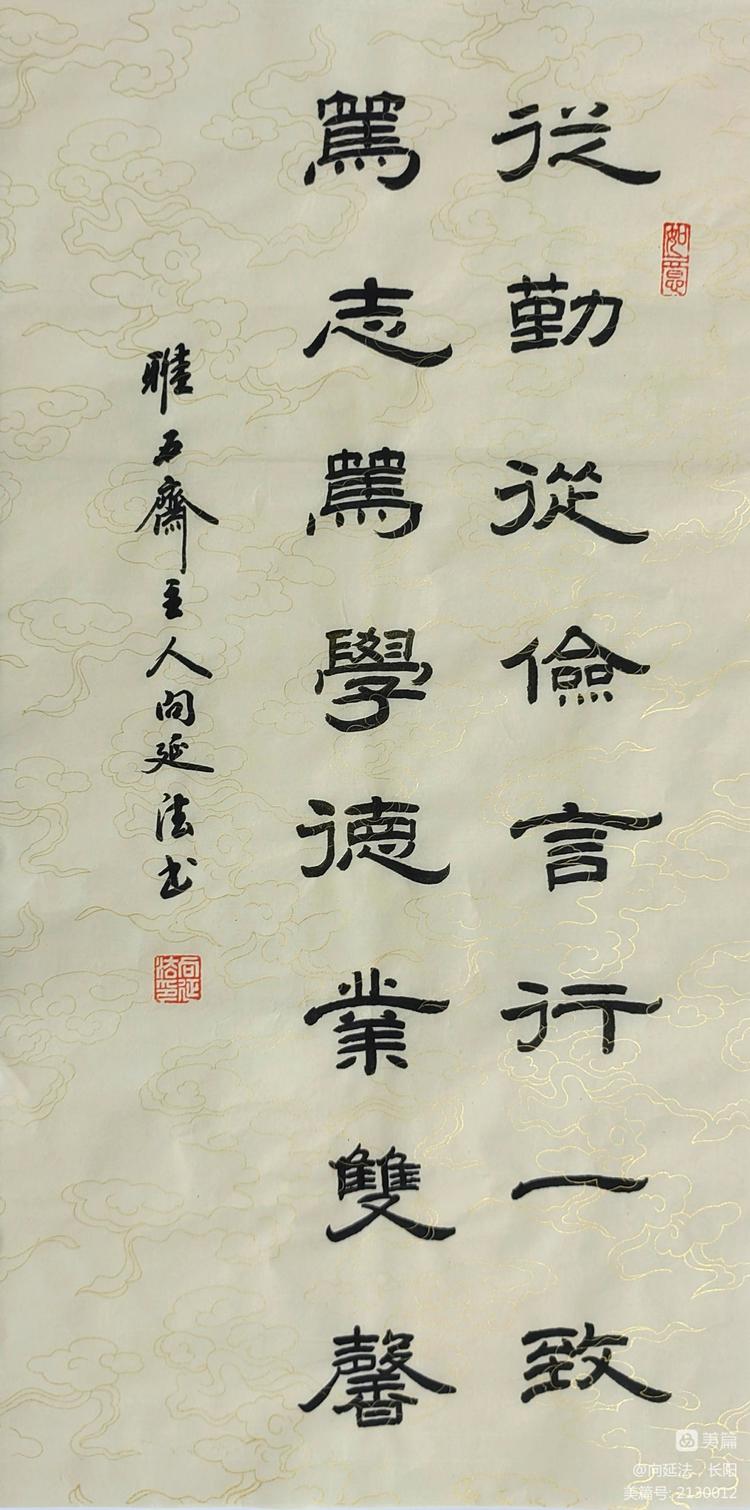 從勤從儉言行一致
篤志篤學德業雙馨
雅石齋主人向延法书
如意
向延法印
美篇
@向延法，长阳
美篇号：2130012